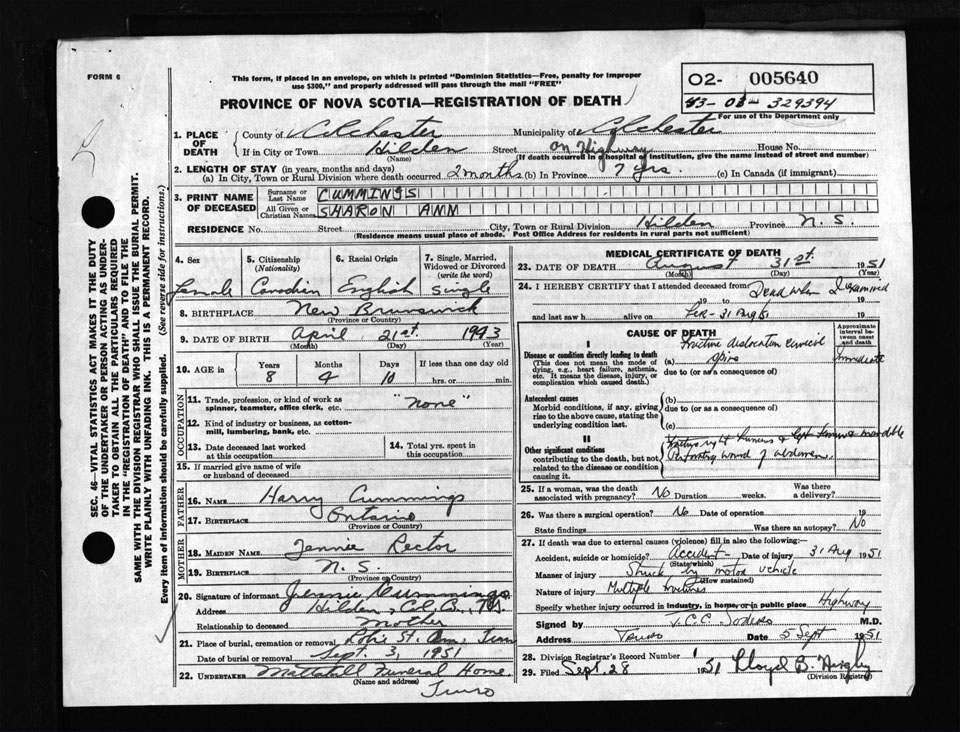 FORM 6
This form, if placed in an envelope, on which is printed "Dominion Statistics—Free, penalty for improper
use $300," and properly addressed will pass through the mail "FREE"
O2- 005640
43-03-329394
PROVINCE OF NOVA SCOTIA—REGISTRATION OF DEATH
For use of the Department only
SEC. 46—VITAL STATISTICS ACT MAKES IT THE DUTY
OF THE UNDERTAKER OR PERSON ACTING AS UNDER-
TAKER TO OBTAIN ALL THE PARTICULARS REQUIRED
IN THE "REGISTRATION OF DEATH" AND TO FILE THE
SAME WITH THE DIVISION REGISTRAR WHO SHALL ISSUE THE BURIAL PERMIT.
WRITE PLAINLY WITH UNFADING INK. THIS IS A PERMANENT RECORD.
Every item of information should be carefully supplied. (See reverse side for instructions.)
1. PLACE OF DEATH
County of Colchester Municipality of Colchester
If in City or Town Hilden Street on Highway House No.
(Name) (If death occurred in a hospital or institution, give the name instead of street and number)
2. LENGTH OF STAY (in years, months and days)
(a) In City, Town or Rural Division where death occurred 2 months (b) In Province 7 yrs. (c) In Canada (if immigrant)
3. PRINT NAME OF DECEASED
Surname or Last Name CUMMINGS
All Given or Christian Names SHARON ANN
RESIDENCE No. Street City, Town or Rural Division Hilden Province N. S.
(Residence means usual place of abode. Post Office Address for residents in rural parts not sufficient)
4. Sex 5. Citizenship (Nationality) 6. Racial Origin 7. Single, Married, Widowed or Divorced (write the word)
Female Canadian English Single
8. BIRTHPLACE New Brunswick
(Province or Country)
9. DATE OF BIRTH April 21st. 1943
(Month) (Day) (Year)
10. AGE in Years Months Days If less than one day old
8 4 10 hrs. or min.
OCCUPATION
11. Trade, profession, or kind of work as
spinner, teamster, office clerk, etc. "None"
12. Kind of industry or business, as cotton-
mill, lumbering, bank, etc.
13. Date deceased last worked
at this occupation
14. Total yrs. spent in
this occupation
15. If married give name of wife
or husband of deceased
FATHER
16. NAME Harry Cummings
17. BIRTHPLACE Ontario
(Province or Country)
MOTHER
18. MAIDEN NAME Jennie Rector
19. BIRTHPLACE N. S.
(Province or Country)
20. Signature of informant Jennie Cummings
Address Hilden, Col. Co., N.S.
Relationship to deceased Mother
21. Place of burial, cremation or removal
Date of burial or removal Sept. 3, 1951
22. UNDERTAKER Mattatall Funeral Home.
(Name and address) Truro
MEDICAL CERTIFICATE OF DEATH
23. DATE OF DEATH August 31st. 1951
(Month) (Day) (Year)
24. I HEREBY CERTIFY that I attended deceased from Dead when I examined
19 to 19
and last saw h alive on her - 31 Aug 51
CAUSE OF DEATH
Approximate interval between onset and death
I
Disease or condition directly leading to death
(This does not mean the mode of
dying, e.g., heart failure, asthenia,
etc. It means the disease, injury, or
complication which caused death.)
(a) Fracture dislocation cervical spine Immediate
due to (or as a consequence of)
Antecedent causes
Morbid conditions, if any, giving
rise to the above cause, stating the
underlying condition last.
(b)
due to (or as a consequence of)
(c)
II
Other significant conditions
contributing to the death, but not
related to the disease or condition
causing it.
Fracture right femur & left &  mandible
Perforating wound of abdomen
25. If a woman, was the death
associated with pregnancy? No Duration weeks. Was there
a delivery?
26. Was there a surgical operation? No Date of operation 19
State findings Was there an autopsy? No
27. If death was due to external causes (violence) fill in also the following:
Accident, suicide or homicide? Accident Date of injury 31 Aug 1951
(State which)
Manner of injury Struck by motor vehicle
(How sustained)
Nature of injury Multiple fractures
Specify whether injury occurred in industry, in home, or in public place Highway
Signed by M.D.
Address Truro Date 5 Sept 1951
28. Division Registrar's Record Number
29. Filed Sept. 28 1951 Lloyd B.
(Division Registrar)